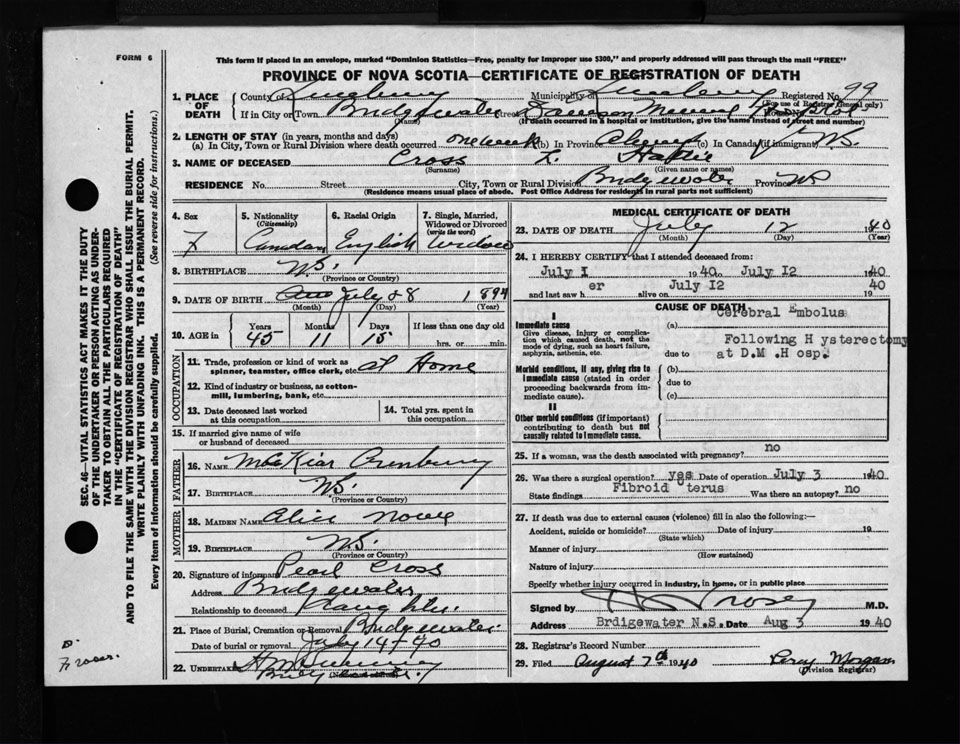 FORM 6
This form if placed in an envelope, marked "Dominion Statistics—Free, penalty for improper use $300," and properly addressed will pass through the mail "FREE"
PROVINCE OF NOVA SCOTIA—CERTIFICATE OF REGISTRATION OF DEATH
1. PLACE OF DEATH County of Lunenburg Municipality of Lunenburg Registered No. 99
(For use of Registrar General only)
If in City or Town Bridgewater Street Dawson Memorial Hospital
(If death occurred in a hospital or institution, give the name instead of street and number)
2. LENGTH OF STAY (in years, months and days)
(a) In City, Town or Rural Division where death occurred one week (b) In Province Always (c) In Canada (if immigrant) N.S.
3. NAME OF DECEASED Cross L. Hattie
(Surname) (Given name or names)
RESIDENCE No. Street City, Town or Rural Division Bridgewater Province N.S.
(Residence means usual place of abode. Post Office Address for Residents in rural parts not sufficient)
4. Sex F
5. Nationality (Citizenship) Canadian
6. Racial Origin English
7. Single, Married, Widowed or Divorced (write the word) widow
8. BIRTHPLACE N.S.
(Province or Country)
9. DATE OF BIRTH July 28 1894
(Month) (Day) (Year)
10. AGE in Years 45 Months 11 Days 15 If less than one day old
hrs. or min.
OCCUPATION
11. Trade, profession or kind of work as spinner, teamster, office clerk, etc. at Home
12. Kind of industry or business, as cotton-mill, lumbering, bank, etc.
13. Date deceased last worked at this occupation
14. Total yrs. spent in this occupation
15. If married give name of wife or husband of deceased
FATHER
16. NAME
17. BIRTHPLACE N.S.
(Province or Country)
MOTHER
18. MAIDEN NAME Alice Nowe
19. BIRTHPLACE N.S.
(Province or Country)
20. Signature of informant Pearl Cross
Address Bridgewater
Relationship to deceased Daughter
21. Place of Burial, Cremation or Removal Bridgewater
Date of burial or removal July 14-40
22. UNDERTAKER
MEDICAL CERTIFICATE OF DEATH
23. DATE OF DEATH July 12 1940
(Month) (Day) (Year)
24. I HEREBY CERTIFY that I attended deceased from:
July I 1940 to July I2 1940
and last saw her alive on July I2 1940
CAUSE OF DEATH
I
Immediate cause
Give disease, injury or complication which caused death, not the mode of dying, such as heart failure, asphyxia, asthenia, etc.
(a) Cerebral Embolus
due to Following H ysterectomy
at D.M .H osp.
Morbid conditions, if any, giving rise to immediate cause (stated in order proceeding backwards from immediate cause).
(b)
due to
(c)
II
Other morbid conditions (if important) contributing to death but not causally related to immediate cause.
25. If a woman, was the death associated with pregnancy? no
26. Was there a surgical operation? yes Date of operation July 3 1940
State findings Fibroid terus Was there an autopsy? no
27. If death was due to external causes (violence) fill in also the following:—
Accident, suicide or homicide? Date of injury 19
(State which)
Manner of injury
(How sustained)
Nature of injury
Specify whether injury occurred in industry, in home, or in public place
Signed by M.D.
Address Brdigewater N.S. Date Aug 3 1940
28. Registrar's Record Number
29. Filed August 7th 1940 Leroy Morgan
(Division Registrar)
SEC. 46—VITAL STATISTICS ACT MAKES IT THE DUTY
OF THE UNDERTAKER OR PERSON ACTING AS UNDER-
TAKER TO OBTAIN ALL THE PARTICULARS REQUIRED
IN THE "CERTIFICATE OF REGISTRATION OF DEATH"
AND TO FILE THE SAME WITH THE DIVISION REGISTRAR WHO SHALL ISSUE THE BURIAL PERMIT.
WRITE PLAINLY WITH UNFADING INK. THIS IS A PERMANENT RECORD.
Every item of information should be carefully supplied. (See reverse side for instructions.)
Dr
Fraser.